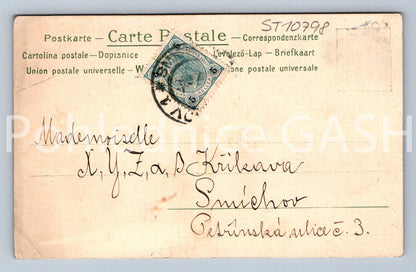 ST10798
Postkarte – Carte Postale – Correspondenzkarte
Cartolina postale – Dopisnice Levelező-Lap – Briefkaart
Union postale universelle – W
Pohlednice GASH
Mademoiselle
X, Y, Z, a Křikava
Smíchov
Petřínská ulice č. 3.